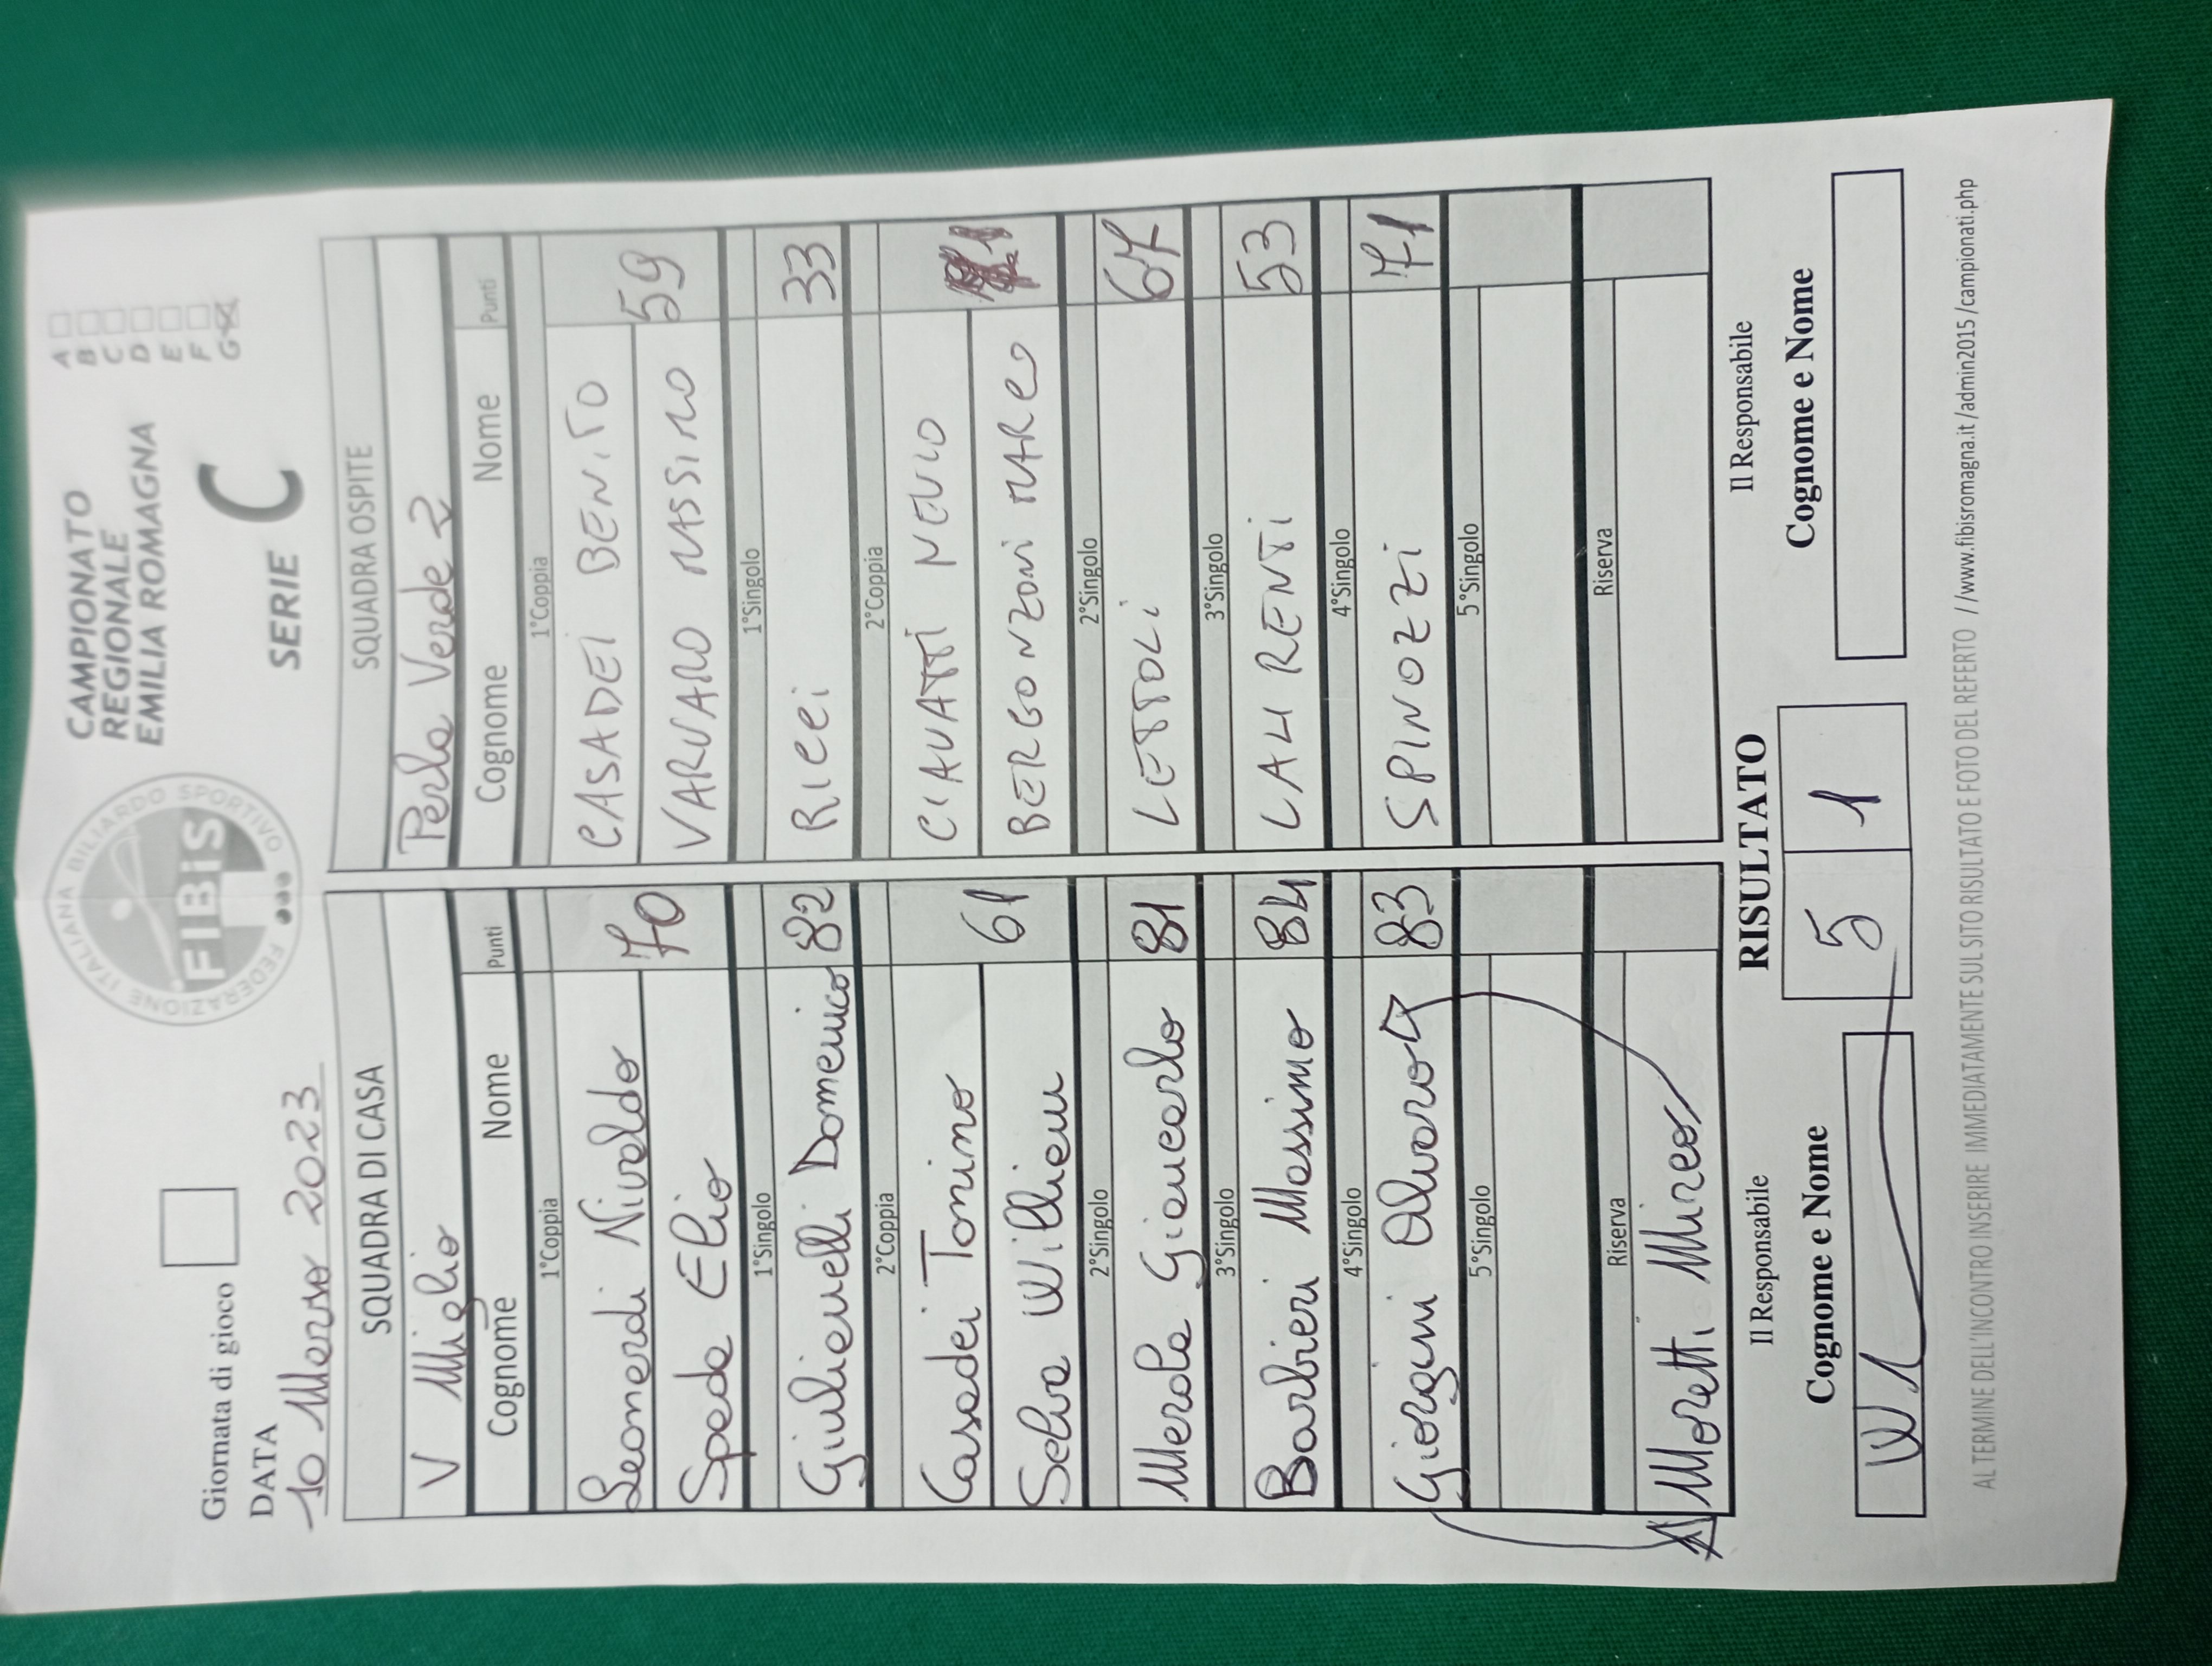 Giornata di gioco
DATA
10 Marzo 2023
FEDERAZIONE ITALIANA BILIARDO SPORTIVO
FIBiS
CAMPIONATO
REGIONALE
EMILIA ROMAGNA
SERIE C
A
B
C
D
E
F
G X
SQUADRA DI CASA
V Miglio
Cognome Nome Punti
1°Coppia
Leonardi Nivaldo
Spada Elio 70
1°Singolo
Giulianelli Domenico 82
2°Coppia
Casadei Tonino
Selva William 61
2°Singolo
Merola Giancarlo 81
3°Singolo
Barbieri Massimo 84
4°Singolo
Giorgini Alvaro 83
5°Singolo
Riserva
Moretti Mirco
SQUADRA OSPITE
Perla Verde 2
Cognome Nome Punti
1°Coppia
CASADEI BENITO
VARVARO MASSIMO 59
1°Singolo
RICCI 33
2°Coppia
CIAVATTI NEVIO
BERGONZONI MARCO
2°Singolo
LETTOLI 67
3°Singolo
LAURENTI 53
4°Singolo
SPINOZZI 71
5°Singolo
Riserva
Il Responsabile
Cognome e Nome
RISULTATO
5 1
Il Responsabile
Cognome e Nome
AL TERMINE DELL'INCONTRO INSERIRE IMMEDIATAMENTE SUL SITO RISULTATO E FOTO DEL REFERTO //www.fibisromagna.it/admin2015/campionati.php